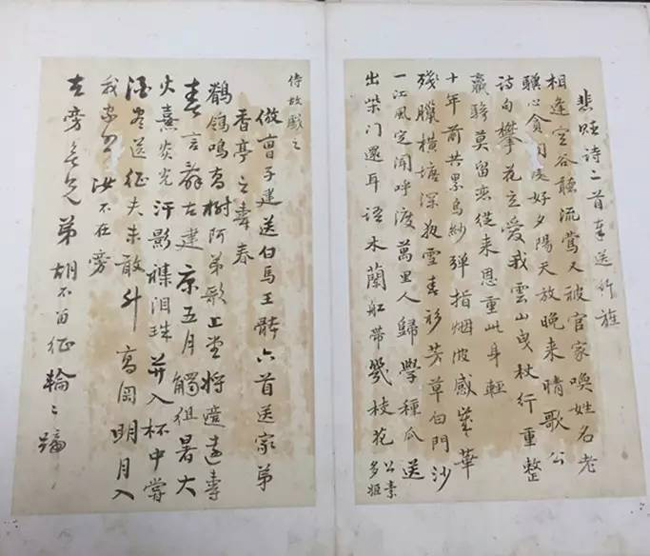 诗二首奉送竹旌
相逢空谷聽流鶯又被官家喚姓名老
驥心貪好夕陽天放晚来晴歌公
诗句攀花立愛我雲山曳杖行重整
羸驂莫留恋從来恩重此身輕
十年前共累烏紗彈指烟波感歲華
殘臘橫塘深夜雪春衫芳草白門沙
一江風定闻呼渡萬里人歸學種瓜送
出柴門還耳语木蘭船带幾枝花公素
多姬
侍故戲之
倣曹子建送白馬王體六首送家弟
香亭之壽春
鶺鴒鳴高樹阿弟歌上堂將遠壽
春言辭古建康五月觸徂暑大
火熹炎光汗影襍泪珠并入杯中嘗
酒盡送征夫未敢升高岡明月入
我家汝不在旁
左旁無兄弟胡不留征輪々蹄